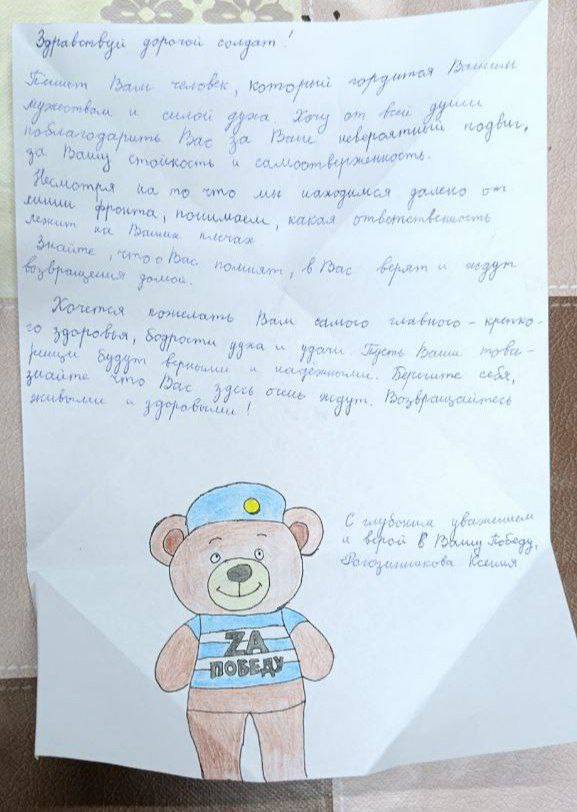 Здравствуй дорогой солдат!
Пишет Вам человек, который гордится Вашим
мужеством и силой духа Хочу от всей души
поблагодарить Вас за Ваш невероятный подвиг,
за Вашу стойкость и самоотверженность.
Несмотря на то что мы находимся далеко от
линии фронта, понимаем, какая ответственность
лежит на Ваших плечах
Знайте, что о Вас помнят, в Вас верят и ждут
возвращения домой.
Хочется пожелать Вам самого главного - крепко-
го здоровья, бодрости духа и удачи. Пусть Ваши това-
рищи будут верными и надежными. Берегите себя,
знайте что Вас здесь очень ждут. Возвращайтесь
живыми и здоровыми!
С глубоким уважением
и верой в Вашу Победу,
Рагозинникова Ксения
ZА
ПОБЕДУ